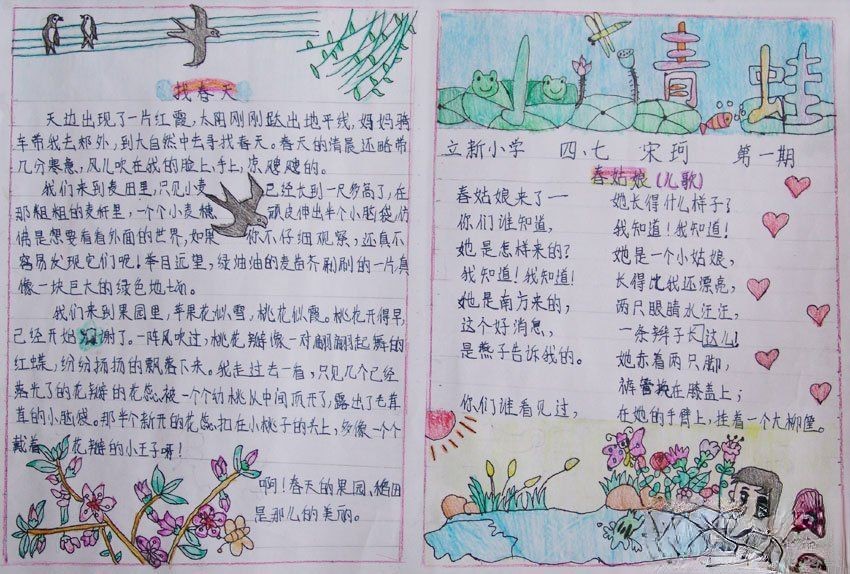 找春天
天边出现了一片红霞,太阳刚刚跃出地平线,妈妈骑
车带我去郊外,到大自然中去寻找春天。春天的清晨还略带
几分寒意,风儿吹在我的脸上、手上,凉飕飕的。
我们来到麦田里,只见小麦已经长到一尺多高了,在
那粗粗的麦秆里,一个个小麦穗顽皮伸出半个小脑袋,仿
佛是想要看看外面的世界,如果你不仔细观察,还真不
容易发现它们呢!举目远望,绿油油的麦苗齐刷刷的一片,真
像一块巨大的绿色地毯。
我们来到果园里,苹果花似雪,桃花似霞。桃花开得早,
已经开始凋谢了。一阵风吹过,桃花瓣像一对翩翩起舞的
红蝶,纷纷扬扬的飘落下来。我走过去一看,只见几个已经
落光了的花瓣的花蕊,被一个个幼桃从中间顶开了,露出了毛茸
茸的小脑袋。那半个新开的花蕊,扣在小桃子的头上,多像一个个
戴着花瓣的小王子呀!
啊!春天的果园、稻田
是那么的美丽。
青蛙
立新小学 四、七 宋珂 第一期
春姑娘(儿歌)
春姑娘来了一
你们谁知道,
她是怎样来的?
我知道!我知道!
她是南方来的,
这个好消息,
是燕子告诉我的。
你们谁看见过,
她长得什么样子?
我知道!我知道!
她是一个小姑娘,
长得比我还漂亮,
两只眼睛水汪汪,
一条辫子长这儿!
她赤着两只脚,
裤管挽在膝盖上;
在她的手臂上,挂着一个大柳筐。